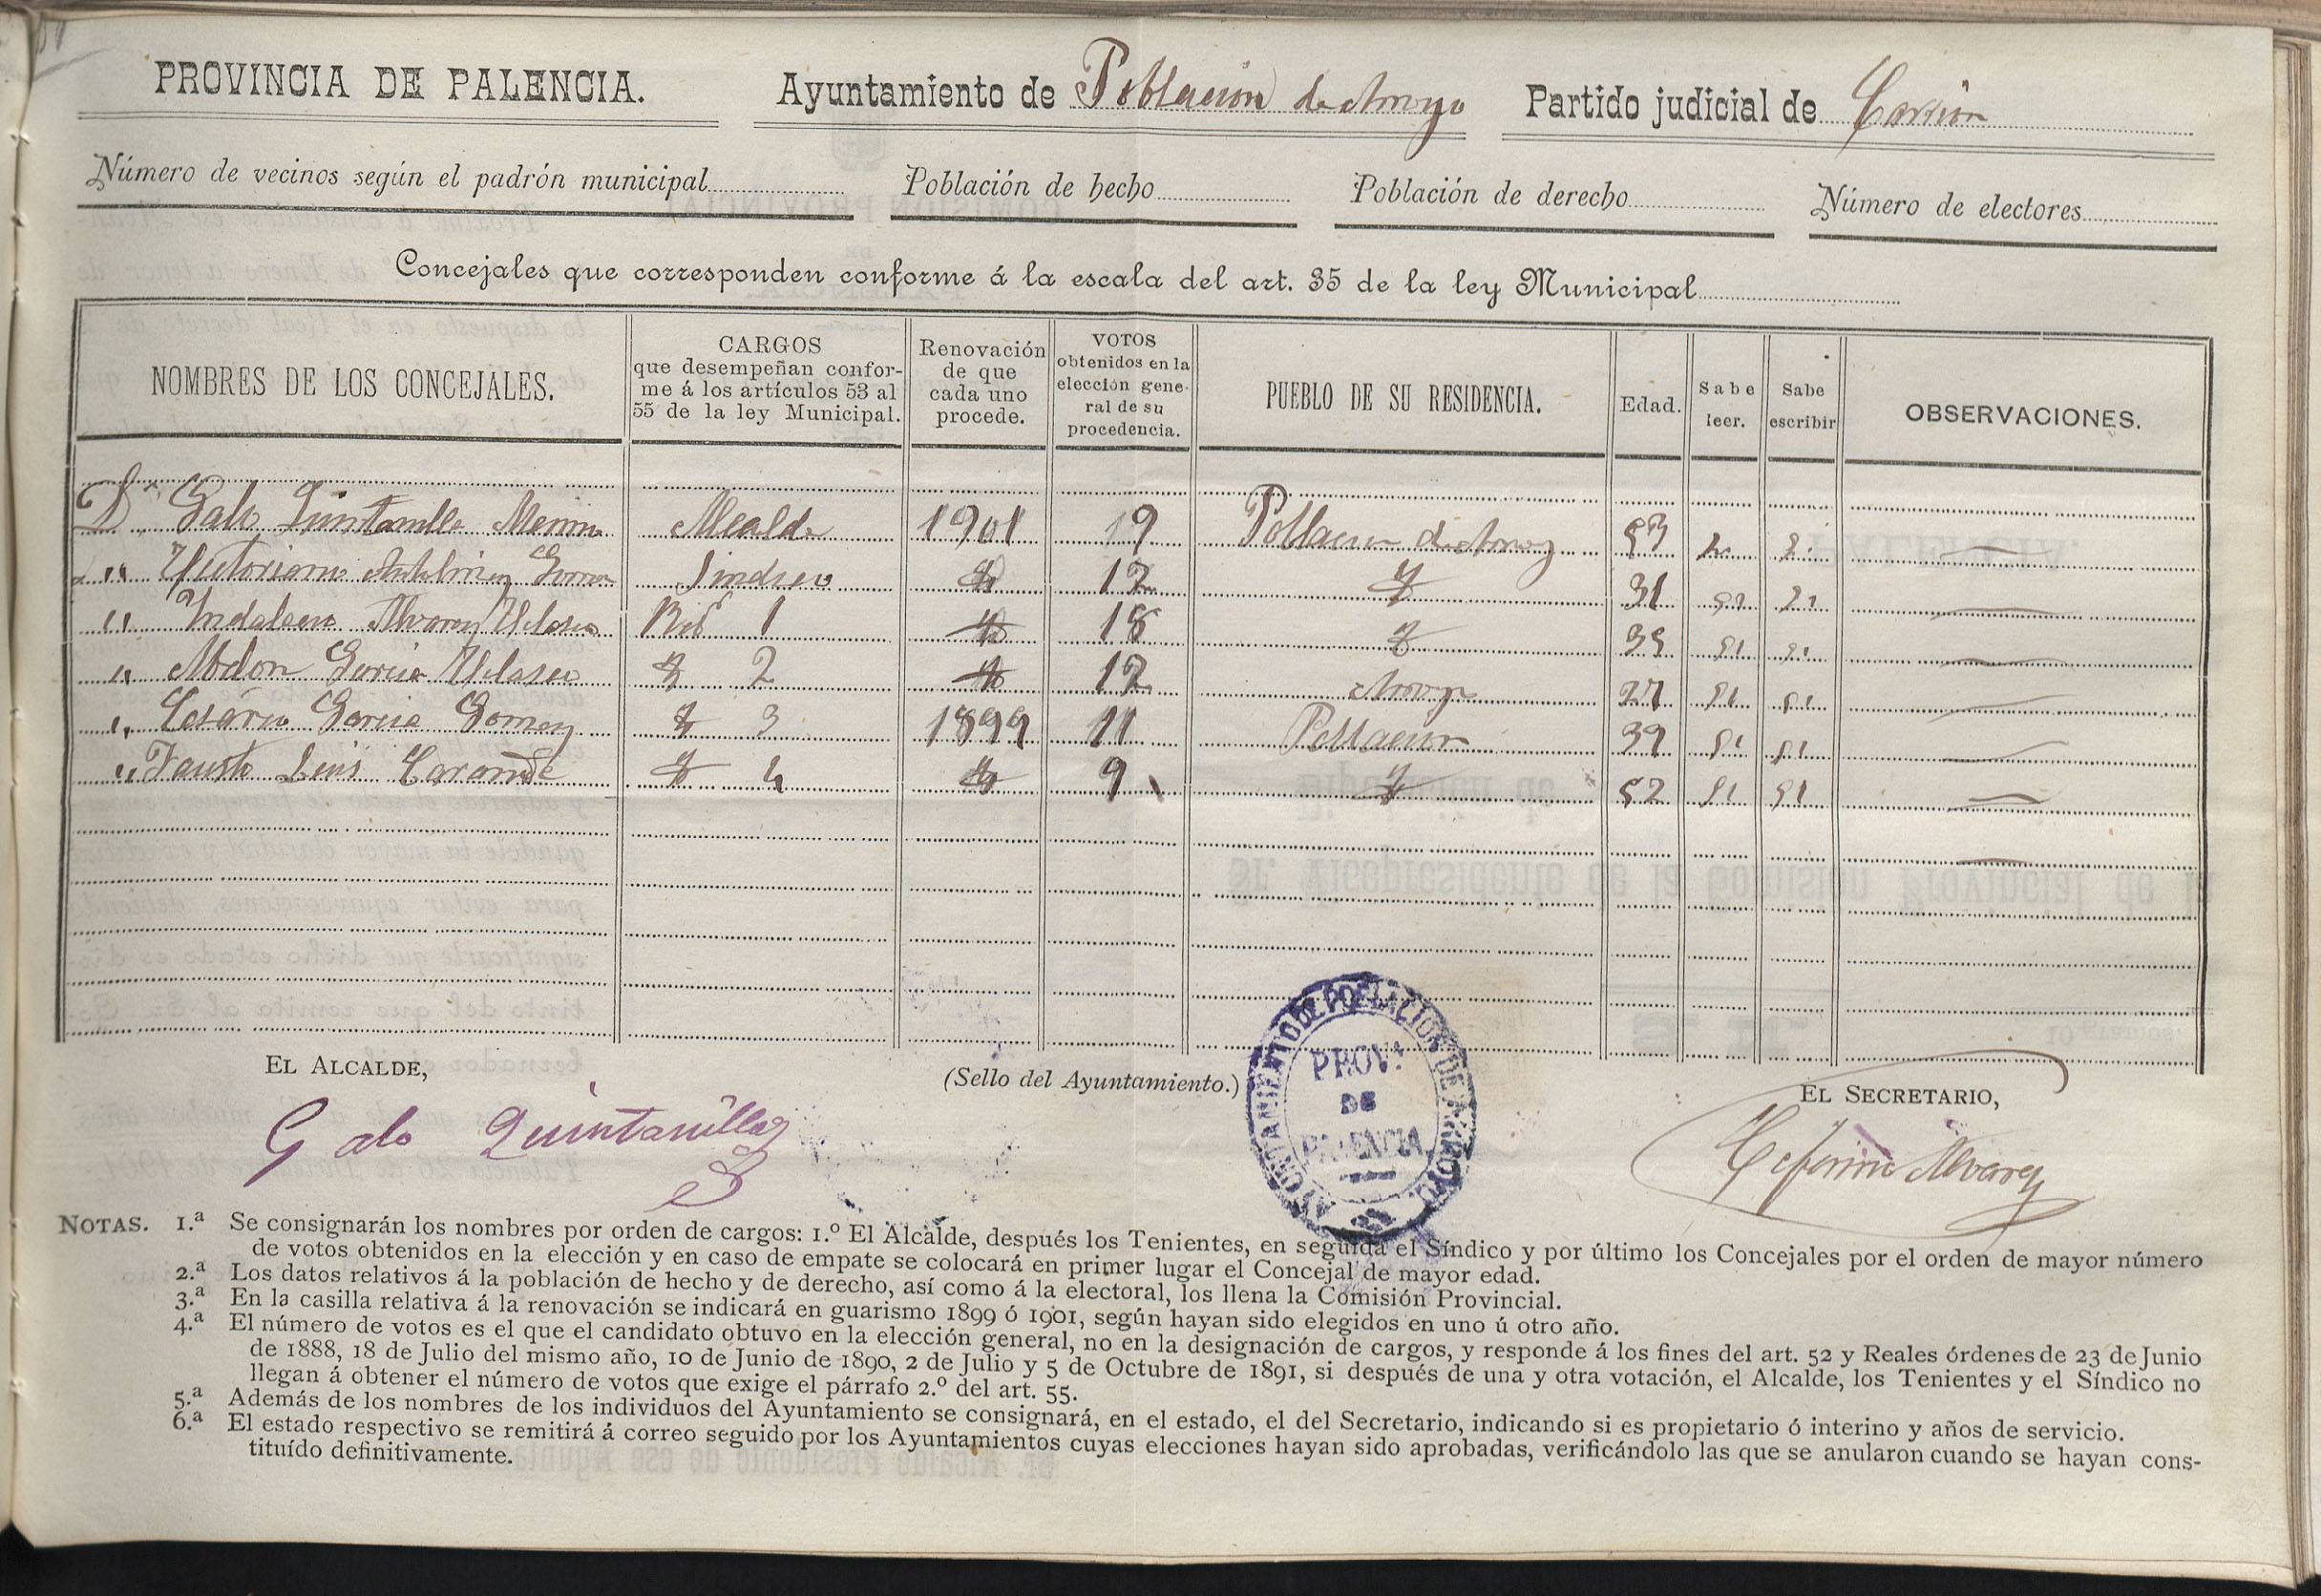 PROVINCIA DE PALENCIA. Ayuntamiento de Poblacion de Arroyo Partido judicial de Carrion
Número de vecinos según el padrón municipal Población de hecho Población de derecho Número de electores
Concejales que corresponden conforme á la escala del art. 35 de la ley Municipal
NOMBRES DE LOS CONCEJALES.
CARGOS
que desempeñan confor-
me á los artículos 53 al
55 de la ley Municipal.
Renovación
de que
cada uno
procede.
VOTOS
obtenidos en la
elección gene-
ral de su
procedencia.
PUEBLO DE SU RESIDENCIA.
Edad.
Sabe
leer.
Sabe
escribir
OBSERVACIONES.
Dn Galo Quintanilla Merino Alcalde 1901 19 Poblacion de Arroyo 53 si si
" Victoriano Gomez Sindico 12 31 si si
" Indalecio Alvarez Velasco Red 1 18 35 si si
" Abdon Garcia Velasco 2 12 Arroyo 27 si si
" Cesáreo Garcia Gomez 3 1899 11 Poblacion 39 si si
" Fausto Luis Carande 4 9 52 si si
EL ALCALDE,
(Sello del Ayuntamiento.)
EL SECRETARIO,
Galo Quintanilla
AYUNTAMIENTO DE POBLACION DE ARROYO
PROV.ª
DE
PALENCIA
Ceferino Alvarez
NOTAS. 1.ª Se consignarán los nombres por orden de cargos: 1.º El Alcalde, después los Tenientes, en seguida el Síndico y por último los Concejales por el orden de mayor número
de votos obtenidos en la elección y en caso de empate se colocará en primer lugar el Concejal de mayor edad.
2.ª Los datos relativos á la población de hecho y de derecho, así como á la electoral, los llena la Comisión Provincial.
3.ª En la casilla relativa á la renovación se indicará en guarismo 1899 ó 1901, según hayan sido elegidos en uno ú otro año.
4.ª El número de votos es el que el candidato obtuvo en la elección general, no en la designación de cargos, y responde á los fines del art. 52 y Reales órdenes de 23 de Junio
de 1888, 18 de Julio del mismo año, 10 de Junio de 1890, 2 de Julio y 5 de Octubre de 1891, si después de una y otra votación, el Alcalde, los Tenientes y el Síndico no
llegan á obtener el número de votos que exige el párrafo 2.º del art. 55.
5.ª Además de los nombres de los individuos del Ayuntamiento se consignará, en el estado, el del Secretario, indicando si es propietario ó interino y años de servicio.
6.ª El estado respectivo se remitirá á correo seguido por los Ayuntamientos cuyas elecciones hayan sido aprobadas, verificándolo las que se anularon cuando se hayan cons-
tituído definitivamente.